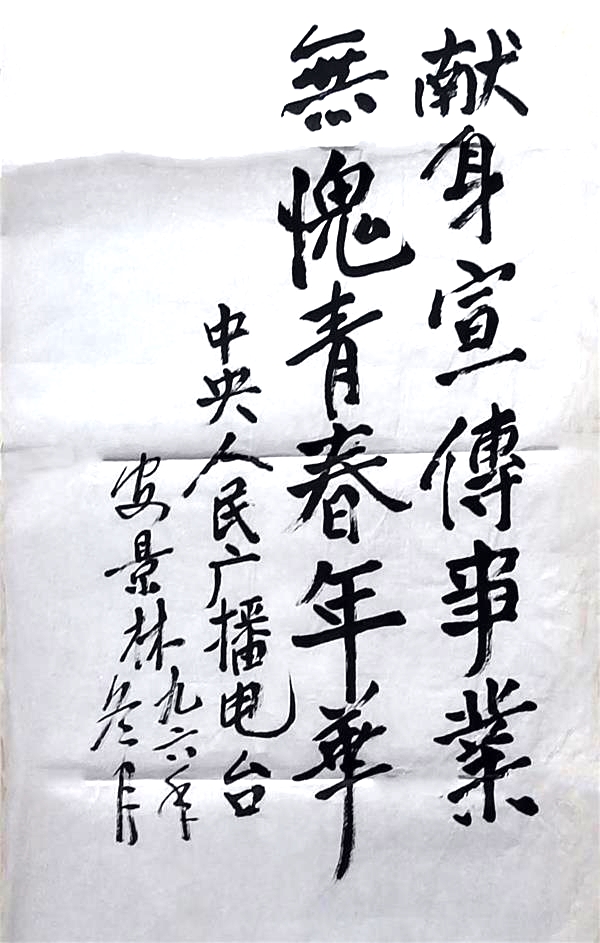 献身宣傳事業
無愧青春年華
中央人民广播电台
安景林九六年
叁月